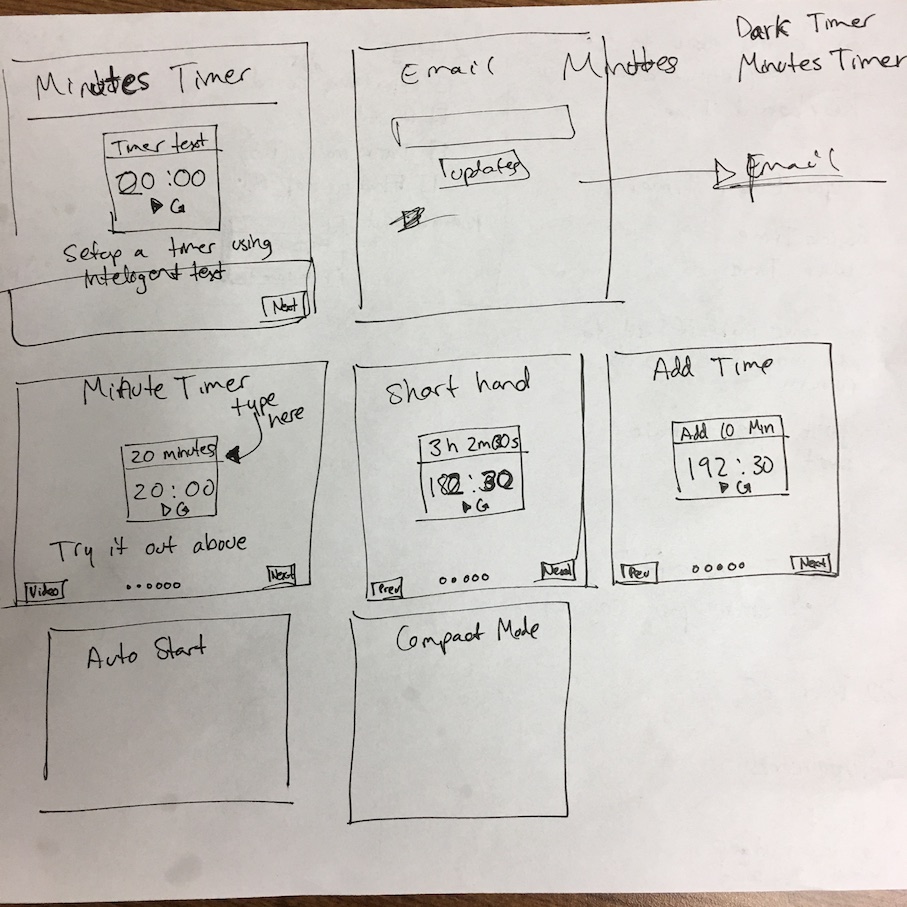 Minutes Timer
Timer text
00:00
Setup a timer using
Intelogent text
Next
Email
updates
Minutes
Dark Timer
Minutes Timer
Email
Minute Timer
type
here
20 minutes
20:00
Try it out above
Video
Next
Short hand
3h 2m30s
182:30
Prev
Next
Add Time
Add 10 Min
192:30
Prev
Next
Auto Start
Compact Mode